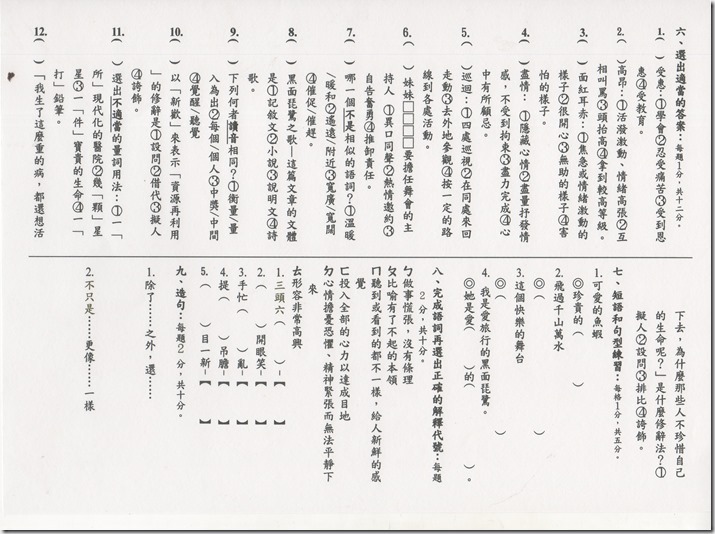 六、選出適當的答案：每題1分，共十二分。
1.(　)受惠：①學會②忍受痛苦③受到恩
惠④受教育。
2.(　)高昂：①活潑激動、情緒高張②互
相叫罵③頭抬高④拿到較高等級。
3.(　)面紅耳赤：①焦急或情緒激動的
樣子②很開心③無助的樣子④害
怕的樣子。
4.(　)盡情：①隱藏心情②盡量抒發情
感，不受到拘束③盡力完成④心
中有所顧忌。
5.(　)巡迴：①四處巡視②在同處來回
走動③去外地參觀④按一定的路
線到各處活動。
6.(　)妹妹□□□□要擔任舞會的主
持人　①異口同聲②熱情邀約③
自告奮勇④推卸責任。
7.(　)哪一個不是相似的語詞？①溫暖
/暖和②遙遠/附近③寬廣/寬闊
④催促/催趕。
8.(　)黑面琵鷺之歌—這篇文章的文體
是①記敘文②小說③說明文④詩
歌。
9.(　)下列何者讀音相同？①衡量/量
入為出②每個/個人③中獎/中間
④覺醒/聽覺
10.(　)以「新歡」來表示「資源再利用
」的修辭是①設問②借代③擬人
④誇飾。
11.(　)選出不適當的量詞用法：①一「
所」現代化的醫院②幾「顆」星
星③一「件」寶貴的生命④一「
打」鉛筆。
12.(　)「我生了這麼重的病，都還想活
下去，為什麼那些人不珍惜自己
的生命呢？」是什麼修辭法？①
擬人②設問③排比④誇飾。
七、短語和句型練習：每格1分，共五分。
1.可愛的魚蝦
◎珍貴的（　　）
2.飛過千山萬水
◎（　　　　）
3.這個快樂的舞台
◎（　　　　　　）
4.我是愛旅行的黑面琵鷺。
◎她是愛（　　）的（　　　）。
八、完成語詞再選出正確的解釋代號：每題
2分，共十分。
ㄅ做事慌張，沒有條理
ㄆ比喻有了不起的本領
ㄇ聽到或看到的都不一樣，給人新鮮的感
覺
ㄈ投入全部的心力以達成目地
ㄉ心情擔憂恐懼、精神緊張而無法平靜下
來
ㄊ形容非常高興
1.三頭六（　）-【　】
2.（　）開眼笑-【　】
3.手忙（　）亂-【　】
4.提（　）吊膽-【　】
5.（　）目一新-【　】
九、造句：每題2分，共十分。
1.除了……之外，還……
2.不只是……更像……一樣